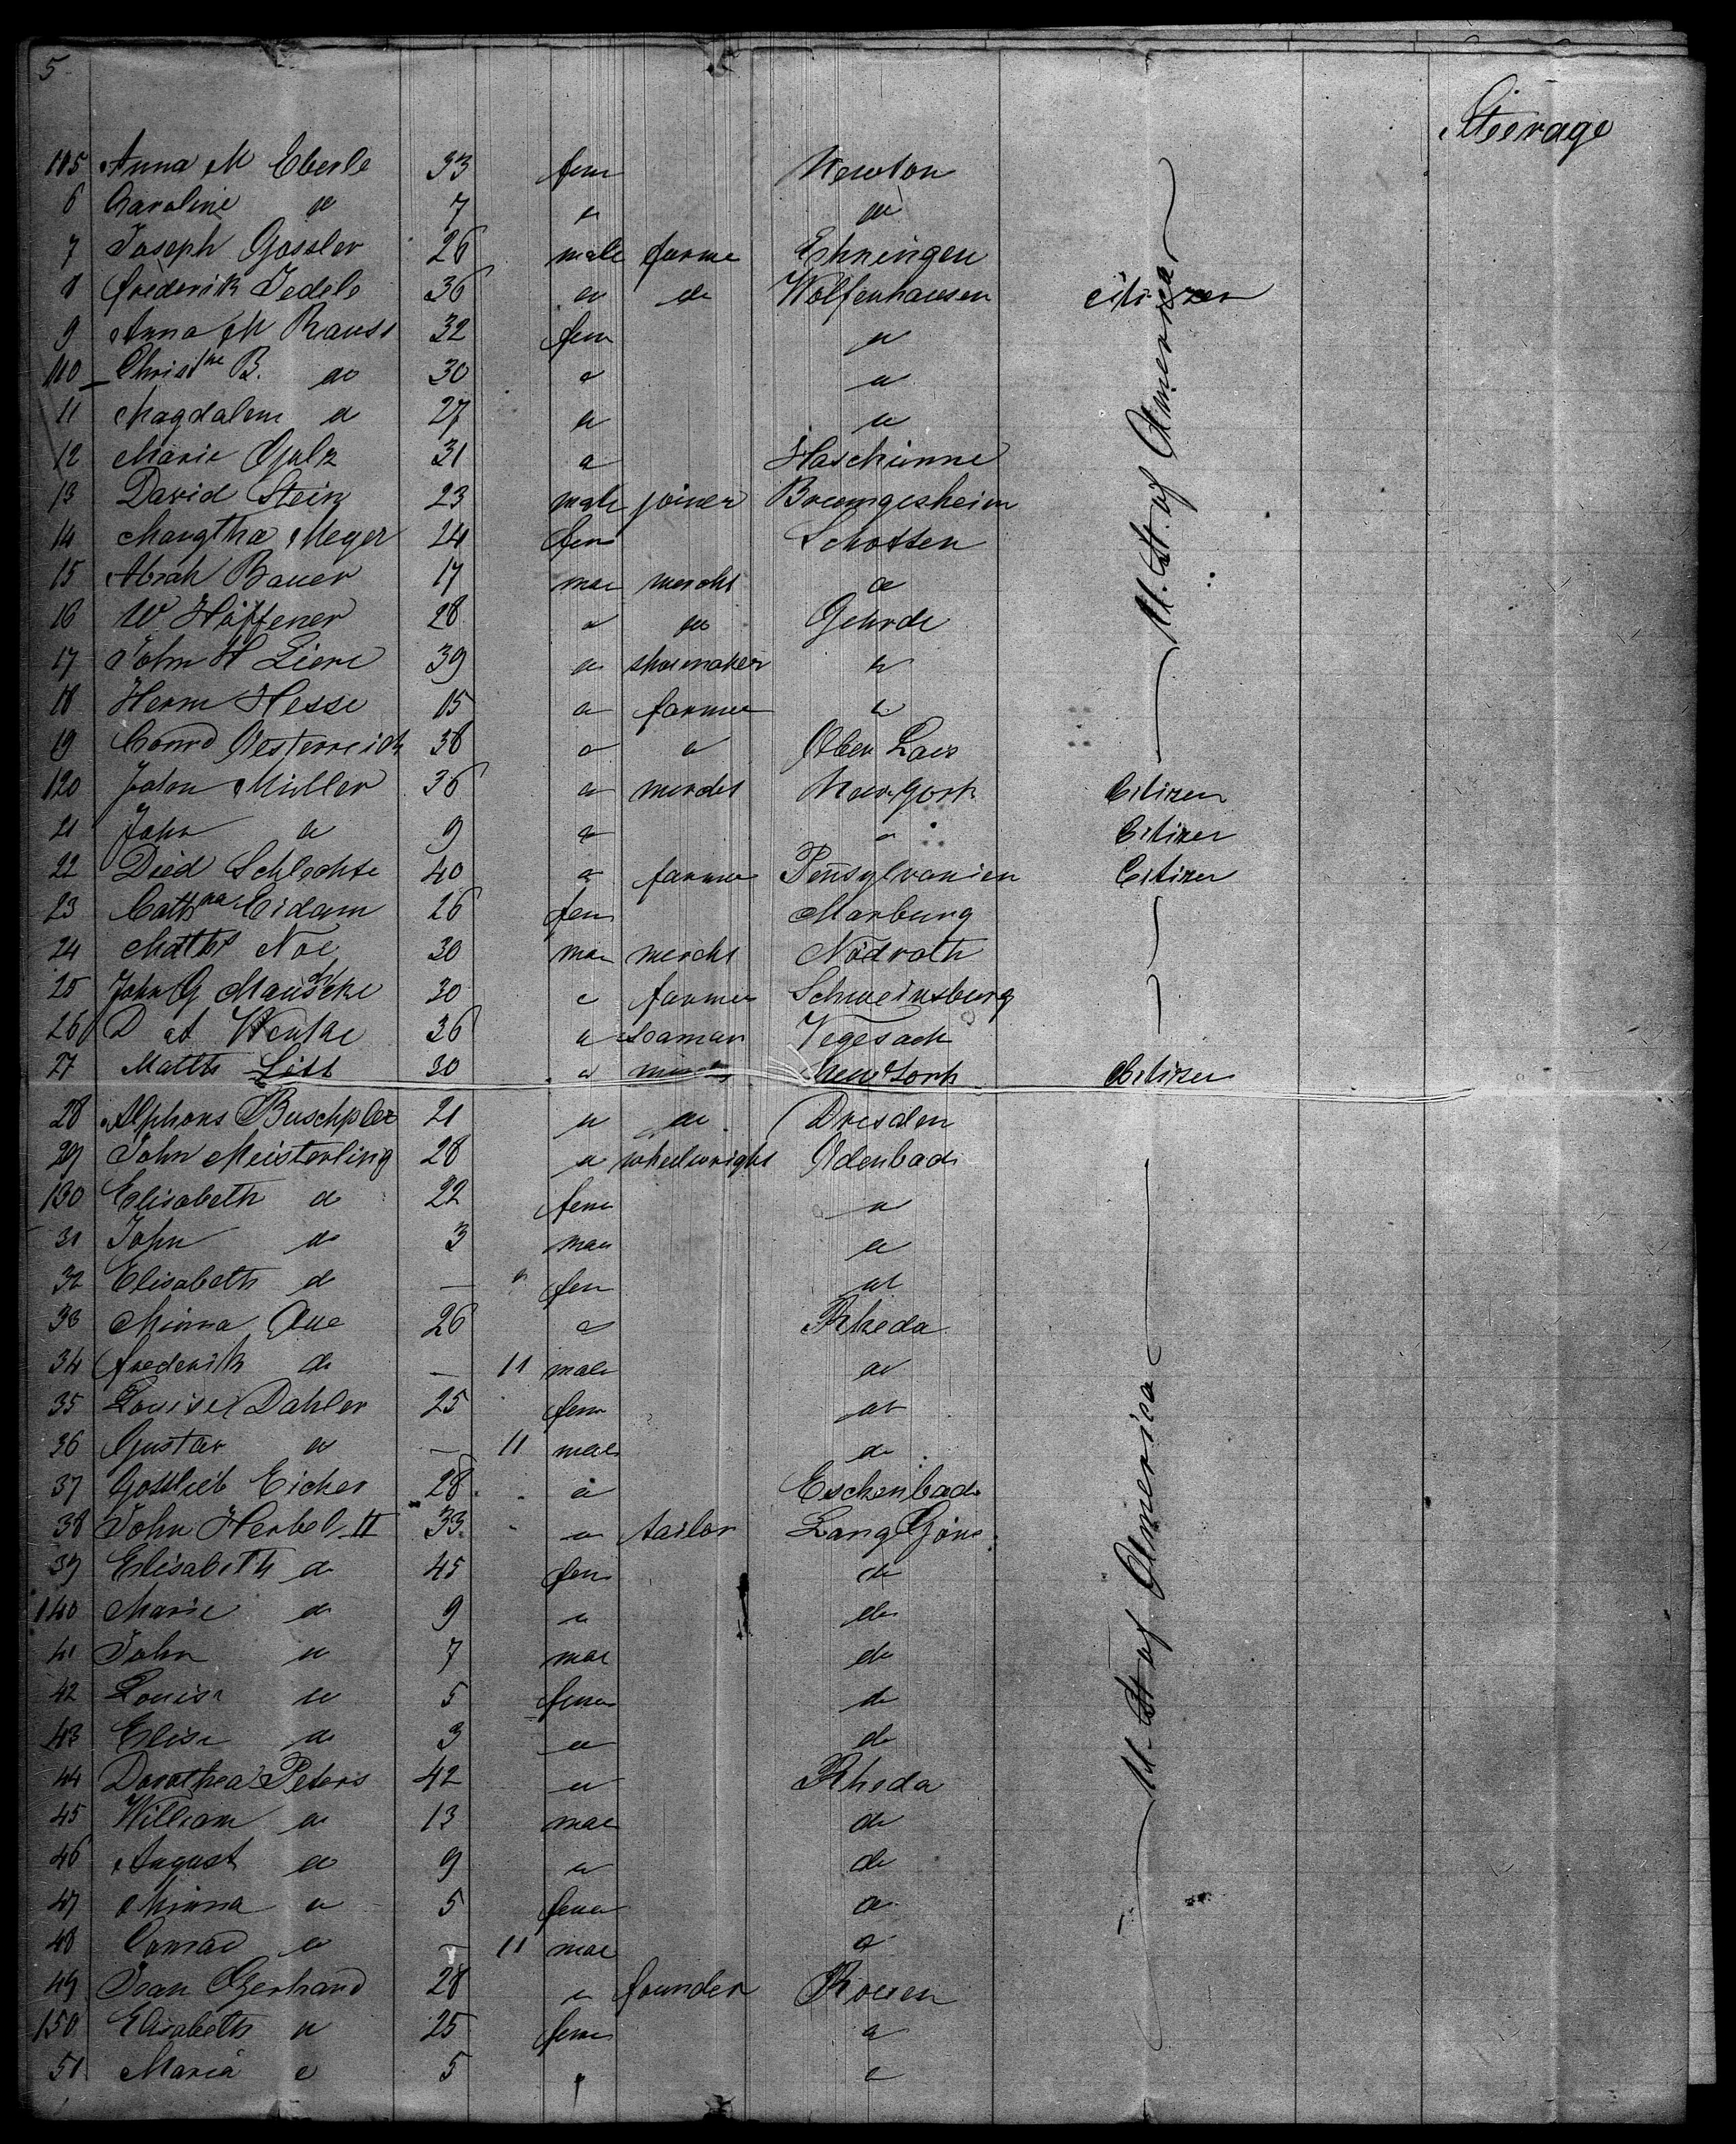 5
Steerage
105 Anna M Eberle 33 fem Newton
6 Caroline do 7 do do
7 Joseph Gossler 26 male farme Ehningen
8 Frederik Dedele 36 do do Wolfenhausen citizen
9 Anna M Rauss 32 fem do
110 Christne B. do 30 do do
11 Magdalem do 27 do do
12 Marie Gulz 31 do
13 David Stein 23 male joiner
14 Margtha Meyer 24 fem Schotten
15 Abrah Bauer 17 mae mercht do
16 W Häffener 28 do do Gehrde
17 John H Liere 39 do shoemaker do
18 Herm Hesse 15 do farmer do
19 Conrd Oesterreich 38 do do Ober Lais
120 John Müller 36 do mercht New York Citizen
21 John do 9 do do Citizen
22 Died Schlochte 40 do farmer Pensylvanien Citizen
23 Cathna Eidam 26 fem Marburg
24 Matths Noe 30 mae mercht Nödrath
25 John G Mauschke 30 do farmer Schweinsburg
26 D at Wenke 36 do seaman Vegesack
27 Matth List 30 do New York Citizen
28 Alphons 21 do do Dresden
29 John Meisterling 28 do wheelwright Odenbach
130 Elisabeth do 22 fem do
31 John do 3 mae do
32 Elisabeth do — fem do
33 Minna Aue 26 do Rheda
34 Frederik do — 11 male do
35 Louise Dahler 25 fem do
36 Gustav do — 11 mae do
37 Gottlieb Eicher 28 do Eschenbach
38 John Herbel II 33 do tailor Lang Göns
39 Elisabeth do 45 fem do
140 Marie do 9 do do
41 John do 7 mae do
42 Louise do 5 fem do
43 Elise do 3 do do
44 Dorothea Peters 42 do Rheda
45 William do 13 mae do
46 August do 9 do do
47 Minna do 5 fem do
48 Conrad do — 11 mae do
49 Joan Gerhard 28 do founder Rouen
150 Elisabeth do 25 fem do
51 Maria do 5 do
U. St. of America
U. St. of America